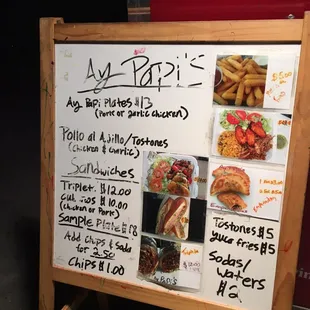 Ay Papi's
Ay Papi Plates $13
(Pork or garlic chicken)
Pollo al Ajillo/Tostones
(chicken & garlic)
Sandwiches
Triplet. $12.00
$10.00
(chicken or Pork)
Sample Plate $18
Add chips & soda
for 2.50
Chips $1.00
Tostones $5
yuca fries $5
Sodas/
Waters
$2